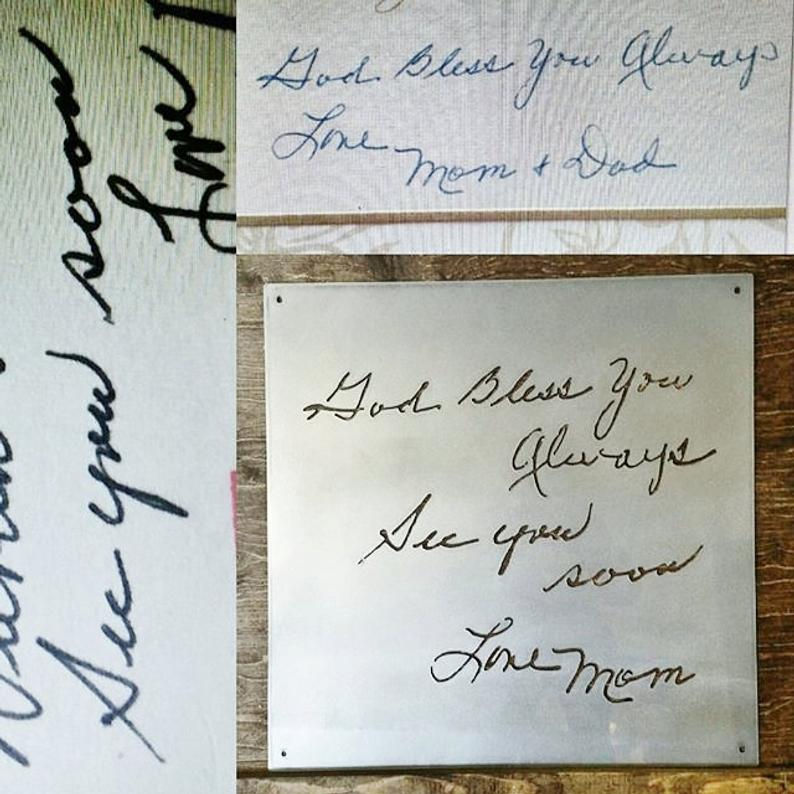 See you soon
Love
God Bless You Always
Love
Mom + Dad
God Bless You
Always
See you
soon
Love Mom